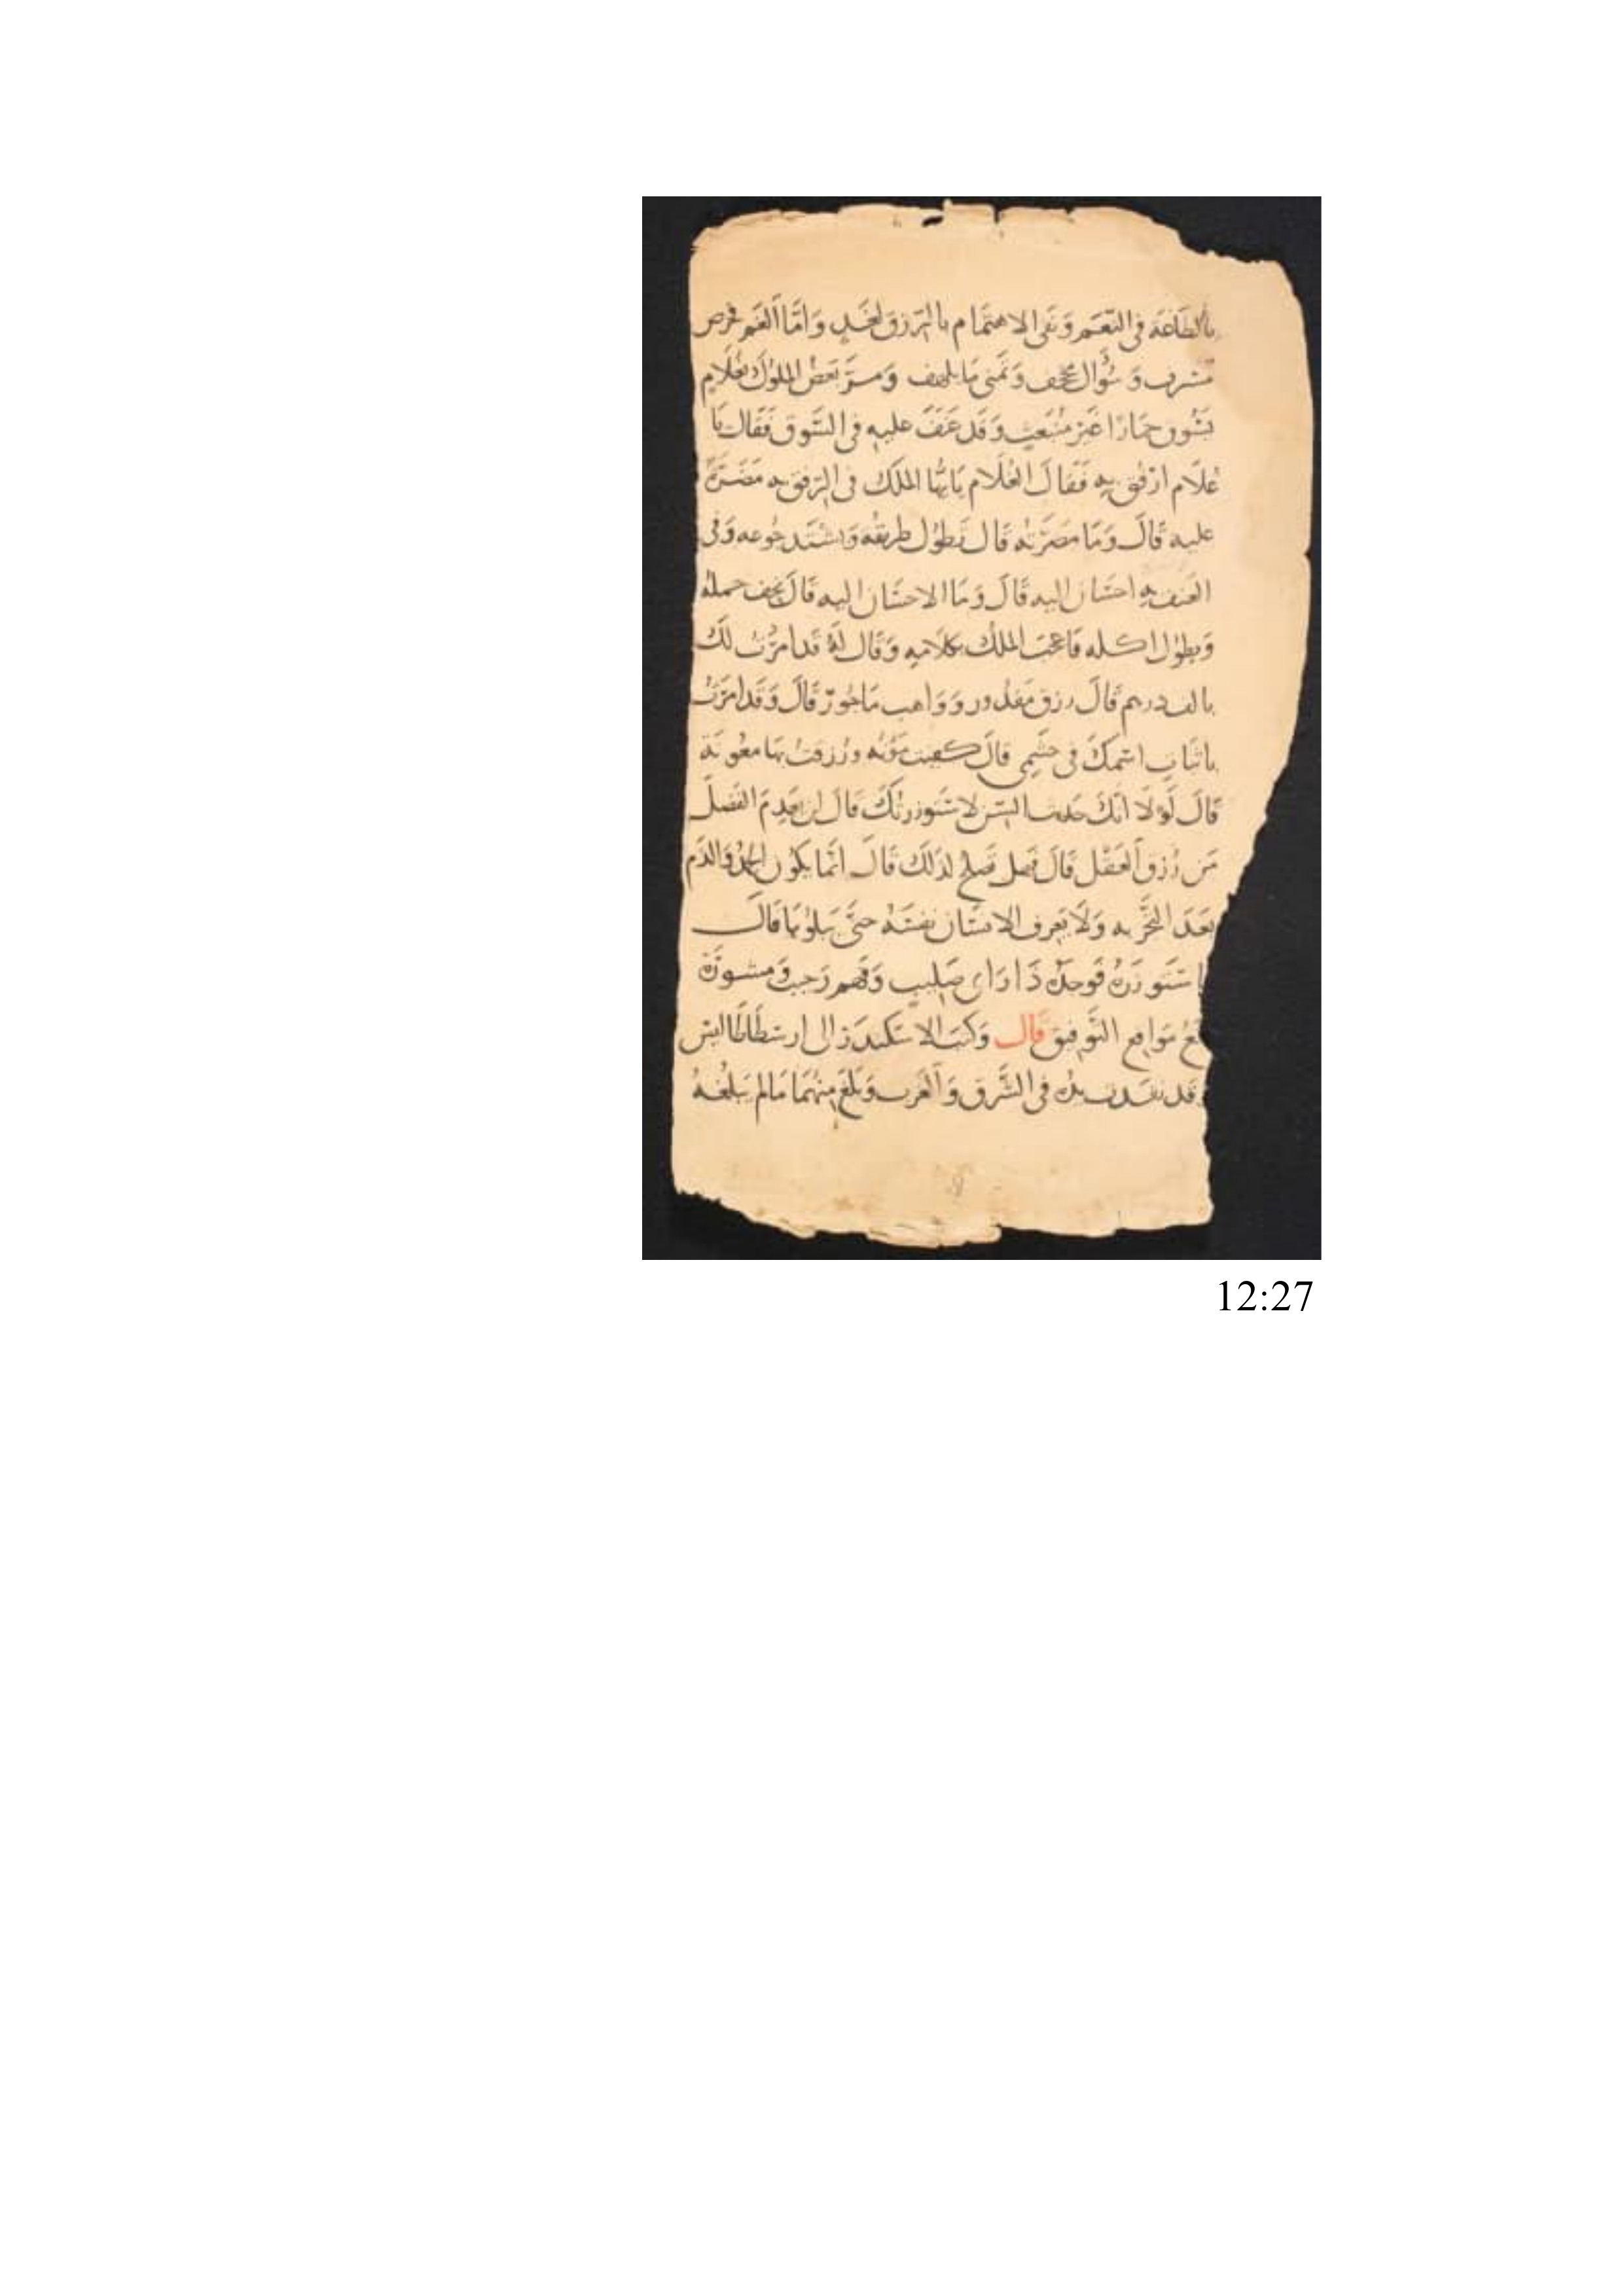 بالطاعة في النعم ونفى الاهتمام بالرزق لغد واما الغم فحرص
مسرف وسؤال مجحف وتمنى ما يلهف ومر بعض الملوك بغلام
يسوق حمارا غير منبعث وقد عنف عليه في السوق فقال يا
غلام ارفق به فقال الغلام يا ايها الملك في الرفق به مضرة
عليه قال وما مضرته قال يطول طريقه ويشتد جوعه وفي
العنف به احسان اليه قال وما الاحسان اليه قال يخف حمله
ويطول اكله فاعجب الملك بكلامه وقال له قد امرت لك
بالف درهم قال رزق مقدور وواهب ماجور قال وقد امرت
باثبات اسمك في حشمي قال كفيت مؤنه ورزقت بها معونة
قال لولا انك حديث السن لاستوزرتك قال لن يعدم الفضل
من رزق العقل قال فهل تصلح لذلك قال انما يكون الحمد والذم
بعد التجربه ولا يعرف الانسان نفسه حتى يبلوها قال
فاستوزره فوجده ذا راي صليب وفهم رحيب ومشورة
تقع مواقع التوفيق قال وكتب الاسكندر الى ارسطاطاليس
وقد نفذت يده في الشرق والغرب وبلغ منهما ما لم يبلغه
12:27